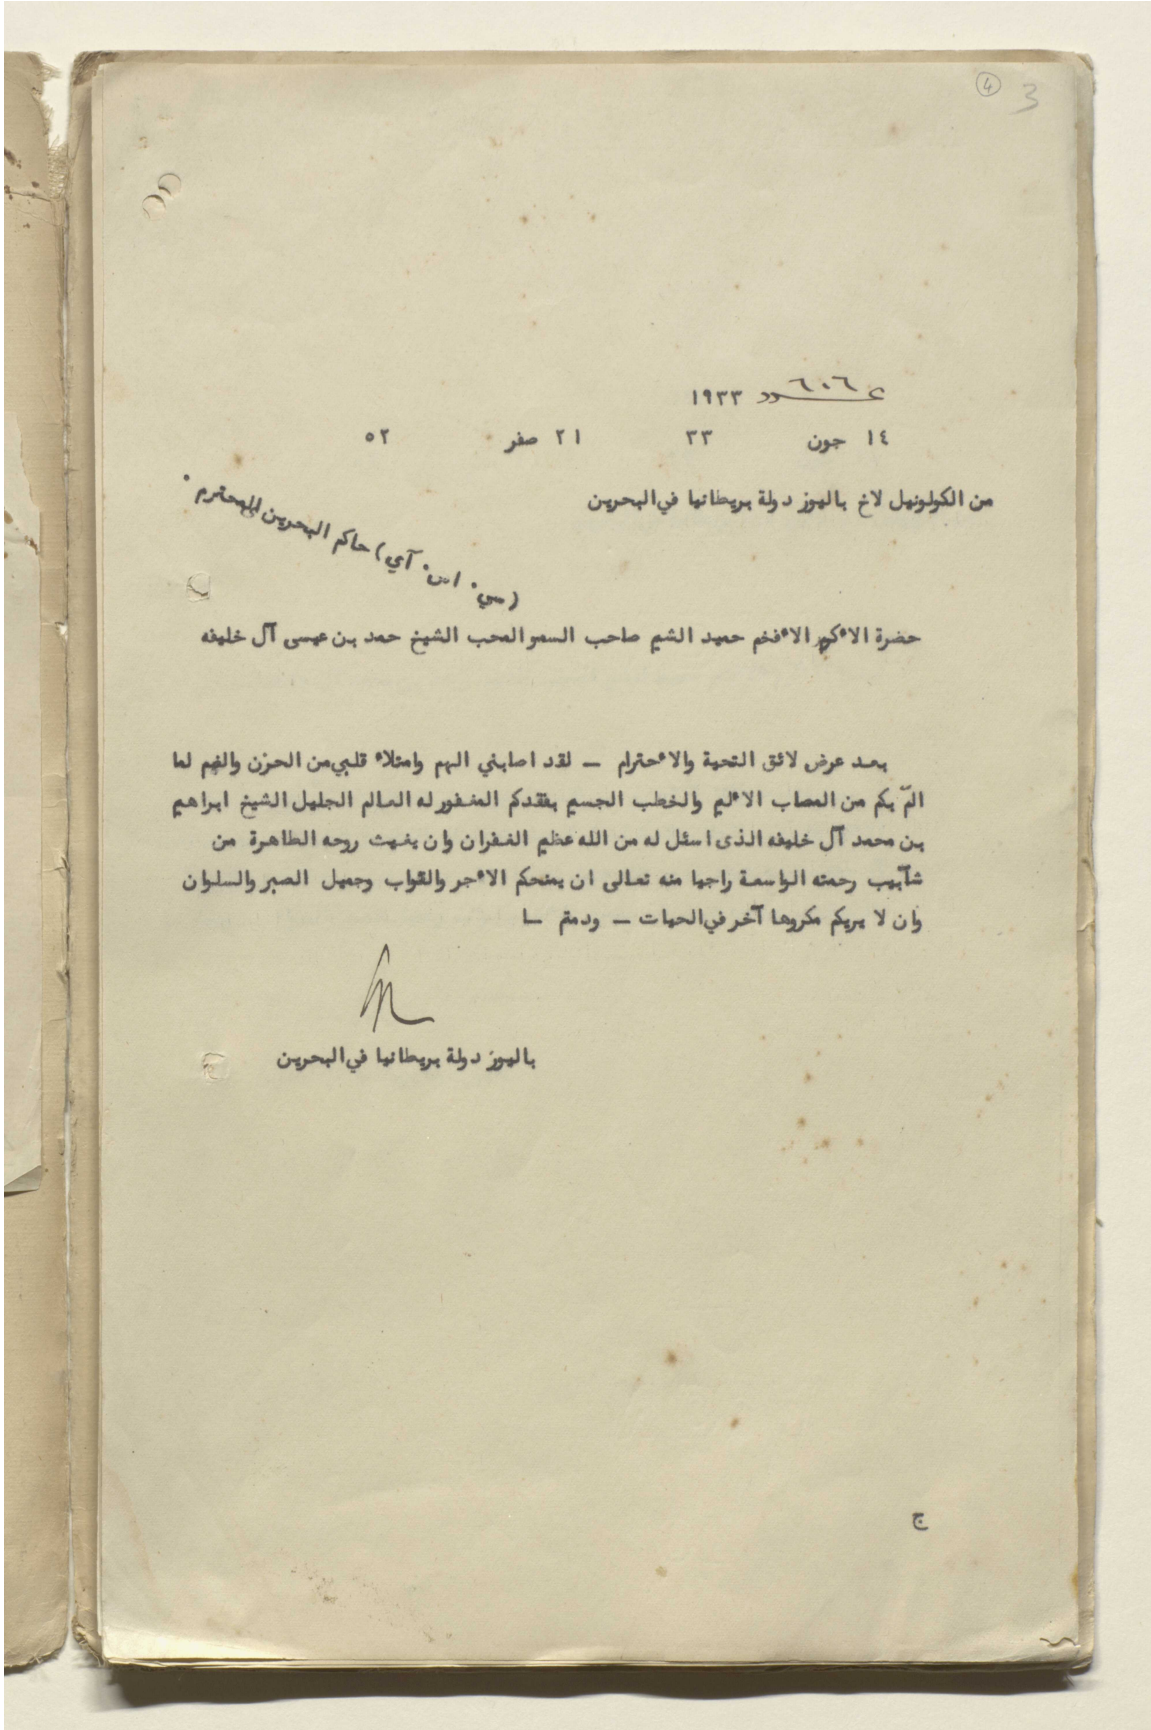 ④ 3
عدد ٦٠٦ ١٩٣٣
١٤ جون ٣٣ ٢١ صفر ٥٢
من الكولونيل لاخ باليوز دولة بريطانيا في البحرين
حضرة الاٴكرم الاٴفخم حميد الشيم صاحب السمو المحب الشيخ حمد بن عيسى آل خليفه
(سي٠ اس٠ آي) حاكم البحرين المحترم٠
بعد عرض لائق التحية والاٴحترام — لقد اصابني الهم وامتلاٴ قلبي من الحزن والغم لما
المّ بكم من المصاب الاٴليم والخطب الجسيم بفقدكم المغفور له العالم الجليل الشيخ ابراهيم
بن محمد آل خليفه الذى اسئل له من الله عظيم الغفران وان يغيث روحه الطاهرة من
شآبيب رحمته الواسعة راجيا منه تعالى ان يمنحكم الاٴجر والثواب وجميل الصبر والسلوان
وان لا يريكم مكروها آخر في الحيات — ودمتم —ا
باليوز دولة بريطانيا في البحرين
ج